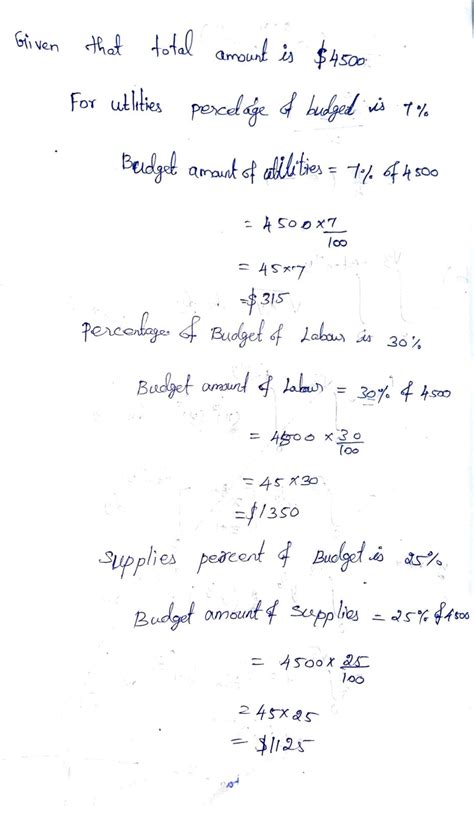 Given that total amount is $4500
For utlities percetage of budged is 7%
Budget amount of utilities = 7% of 4500
= 4500×7/100
= 45×7
=$315
percentage of Budget of Labour is 30%
Budget amount of Labour = 30% of 4500
= 4500 × 30/100
= 45×30
=$1350
supplies percent of Budget is 25%
Budget amount of supplies = 25% of 4500
= 4500× 25/100
= 45×25
= $1125